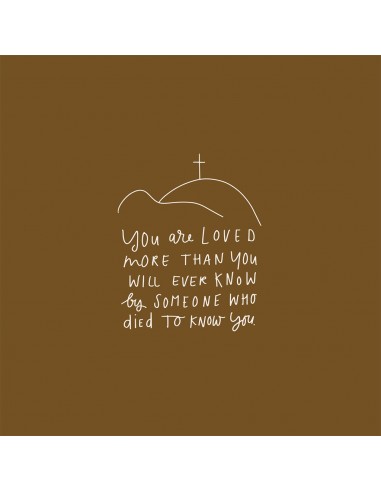 you are LOVED
MORE THAN YOU
WILL EVER KNOW
by SOMEONE WHO
died TO KNOW you.